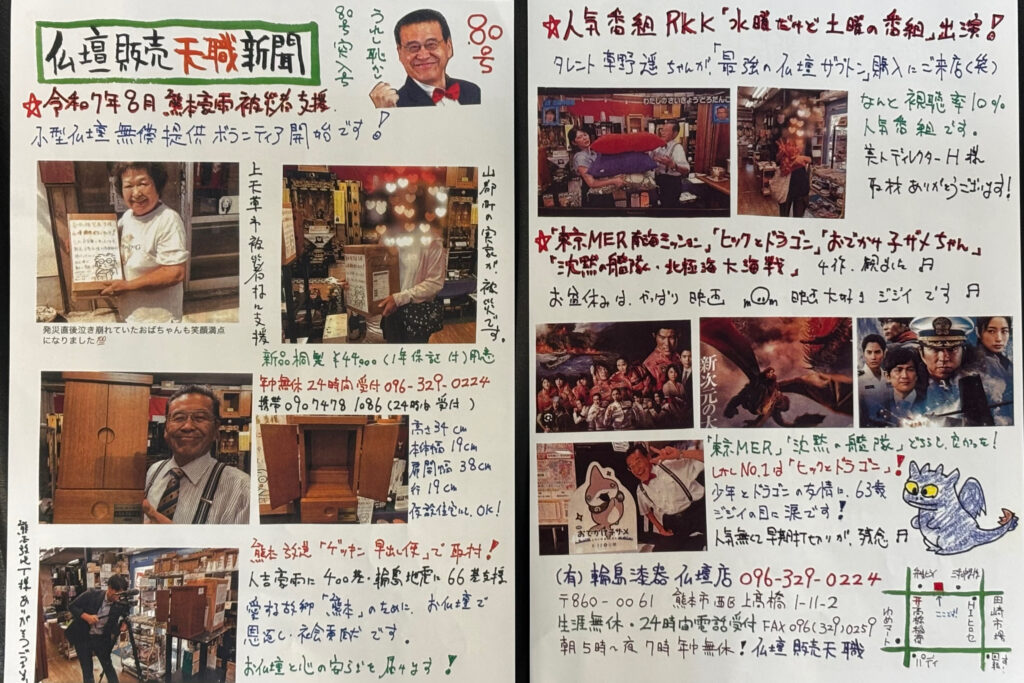 仏壇販売天職新聞
80号突入号
うれし恥かし
80号
☆令和7年8月 熊本豪雨被災者支援
小型仏壇無償提供ボランティア開始です!
上天草市被災者様に支援
山都町の実家が、被災です。
発災直後泣き崩れていたおばちゃんも笑顔満点
になりました💯
新品桐製 ¥44,000(1年保証付)用意
年中無休24時間受付 096-329-0224
携帯 090 7478 1086(24時間受付)
高さ34cm
本体幅19cm
扉開幅38cm
行19cm
仮設住宅にも、OK!
熊本放送「ゲツキン早出し便」で取材!
人吉豪雨に400基・輪島地震に66基支援
愛する故郷「熊本」のために、お仏壇で
恩返し・社会貢献です。
お仏壇と心の安らぎを届けます!
☆人気番組RKK「水曜だけど土曜の番組」出演!
タレント草野遥ちゃんが、「最強の仏壇ザブトン」購入にご来店(笑)
わたしのさいきょうどろだんご
なんと視聴率10%
人気番組です。
美人ディレクターH様
取材ありがとうございます!
☆「東京MER南海ミッション」「ヒックとドラゴン」「おでかけ子ザメちゃん」
「沈黙の艦隊・北極海大海戦」 4作、観ました♬
お盆休みは、やっぱり映画 映画大好きジジイです♬
新次元の
「東京MER」「沈黙の艦隊」どちらも、良かったな!
しかしNo.1は「ヒックとドラゴン」!
少年とドラゴンの友情に、63歳
ジジイの目に涙です!
人気無く早期打ち切りが、残念♬
おでかけ子ザメ
(有)輪島漆器仏壇店 096-329-0224
〒860-0061 熊本市西区上高橋1-11-2
生涯無休・24時間電話受付 FAX096(329)0259
朝5時~夜7時 年中無休!仏壇販売天職
高橋稲荷
ここ
ゆめマート
田崎市場